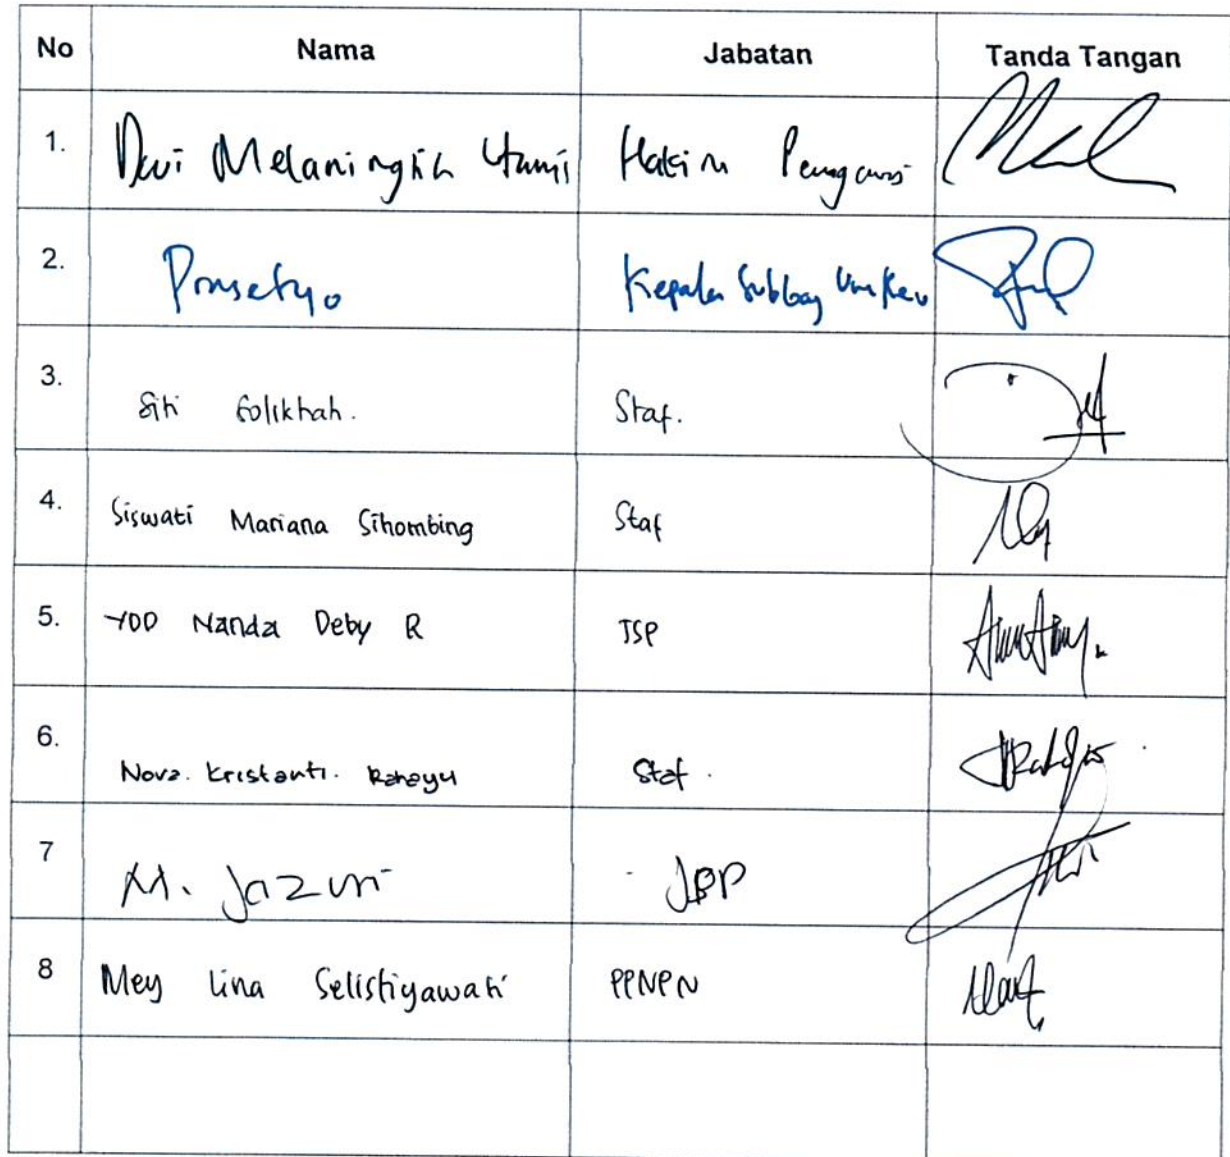 No Nama Jabatan Tanda Tangan
1. Dewi Melaningsih Utami Hakim Pengawas
2. Prasetyo Kepala Subbag Um Keu
3. Siti Solikhah. Staf.
4. Siswati Mariana Sihombing Staf
5. YDD Nanda Deby R JSP
6. Nova. Kristanti. Rahayu Staf.
7 M. Jazuri
8 Mey Lina Selistiyawati PPNPN